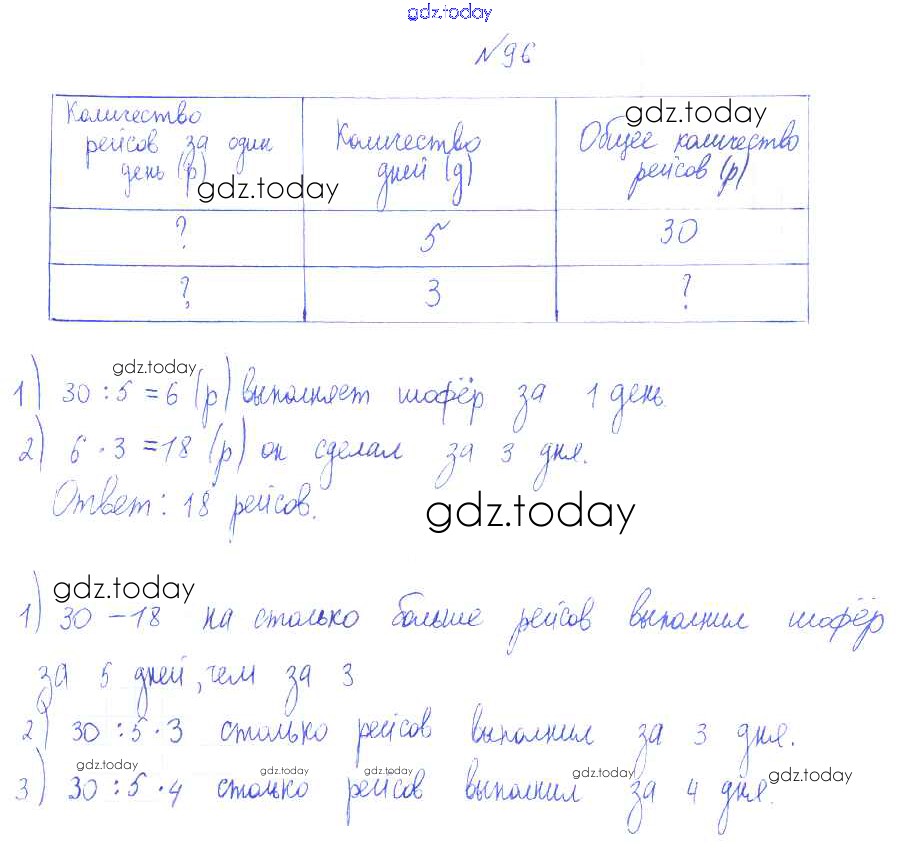 gdz.today
№96
Количество рейсов за один день (р) gdz.today
Количество дней (д)
gdz.today Общее количество рейсов (р)
? 5 30
? 3 ?
gdz.today
1) 30 : 5 = 6 (р) выполняет шофёр за 1 день.
2) 6 · 3 = 18 (р) он сделал за 3 дня.
Ответ: 18 рейсов.
gdz.today
gdz.today
1) 30 – 18 на столько больше рейсов выполнил шофёр
за 5 дней, чем за 3
2) 30 : 5 · 3 столько рейсов выполнил за 3 дня.
gdz.today gdz.today gdz.today gdz.today gdz.today
3) 30 : 5 · 4 столько рейсов выполнил за 4 дня.